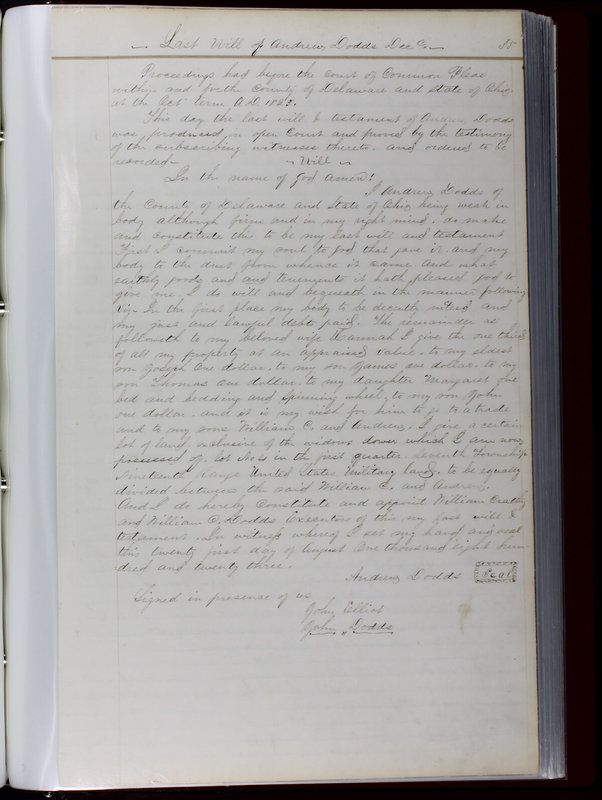 Last Will of Andrew Dodds Dec'd. 35
Proceedings had before the Court of Common Pleas
within and for the County of Delaware and State of Ohio
at the Oct Term A.D. 1823.
This day the last will & testament of Andrew Dodds
was, produced, in open Court and proved by the testimony
of the subscribing witnesses thereto. and ordered to be
recorded-
~ Will ~
In the name of God Amen!
I Andrew Dodds of
the County of Delaware and State of Ohio being weak in
body although firm and in my right mind. do make
and constitute this to be my last will and testament
First I commit my soul to God that gave it and my
body to the dust from whence it came and what
earthly goods and and tenements it hath pleased God to
give me. I do will and bequeath in the manner following
Viz- In the first place my body to be decently inter'd and
my just and lawful debts paid. The remainder as
followeth to my beloved wife Hannah I give the one third
of all my property at an appraised value. to my eldest
son Joseph one dollar. to my son James one dollar. to my
son Thomas one dollar. to my daughter Margaret one
bed and bedding and spinning wheel. to my son John
one dollar. and it is my wish for him to go to a trade
and to my sons William C. and Andrew. I give a certain
lot of land exclusive of the widows dower which I am now
possessed of. lot No in the first quarter. Seventh Township
Nineteenth Range United States Military land. to be equally
divided between the said William C. and Andrew.
And I do hereby Constitute and appoint William
and William C. Dodds Executors of this my last will &
testament. In witness whereof I set my hand and seal
this twenty first day of August One thousand eight hun-
dred and twenty three.
Andrew Dodds Seal
Signed in presence of us
John Elliot
John Dodds